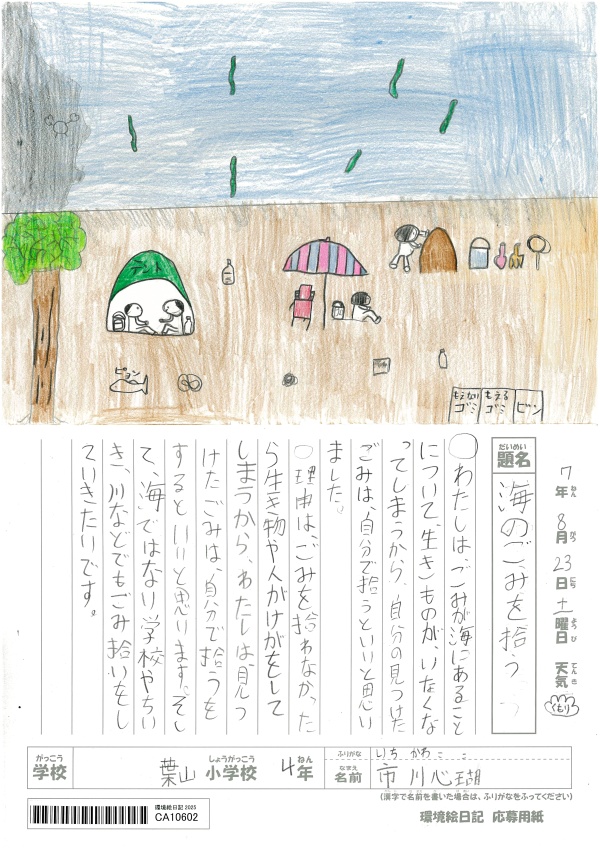 ピョン
もえない
ゴミ
もえる
ゴミ
ビン
7年 8月 23日 土曜日 天気 くもり
ねん がつ にち ようび てんき
だいめい
題名
海のごみを拾う
○わたしは、ごみが海にあること
について、生きものが、いなくな
ってしまうから、自分の見つけた
ごみは、自分で拾うといいと思い
ました。
○理由は、ごみを拾わなかった
ら生き物や人がけがをして
しまうから、わたしは、見つ
けたごみは、自分で拾うを
するといいと思います。そし
て、海ではない学校やちい
き、川などでもごみ拾いをし
ていきたいです。
がっこう しょうがっこう ねん
学校 葉山 小学校 4年
ふりがな いち かわ ここ
なまえ
名前 市川心瑚
(漢字で名前を書いた場合は、ふりがなをふってください)
環境絵日記 2025
CA10602
環境絵日記 応募用紙